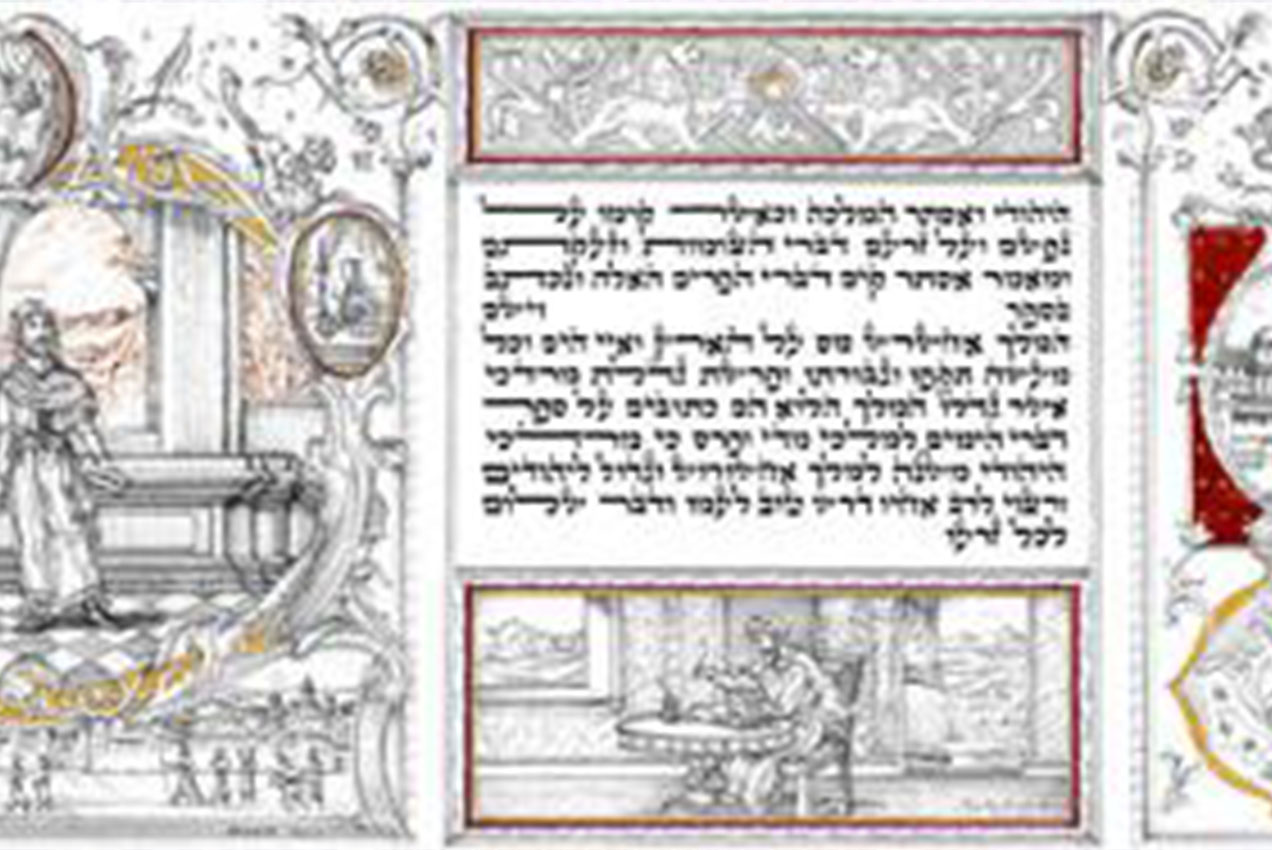 היהודי ואסתר המלכה וכאשר קימו על
נפשם ועל זרעם דברי הצומות וזעקתם
ומאמר אסתר קים דברי הפרים האלה ונכתב
בספר וישם
המלך אחשרש מס על הארץ ואיי הים וכל
מעשה תקפו וגבורתו ופרשת גדלת מרדכי
אשר גדלו המלך הלוא הם כתובים על ספר
דברי הימים למלכי מדי ופרס כי מרדכי
היהודי משנה למלך אחשורוש וגדול ליהודים
ורצוי לרב אחיו דרש טוב לעמו ודבר שלום
לכל זרעו